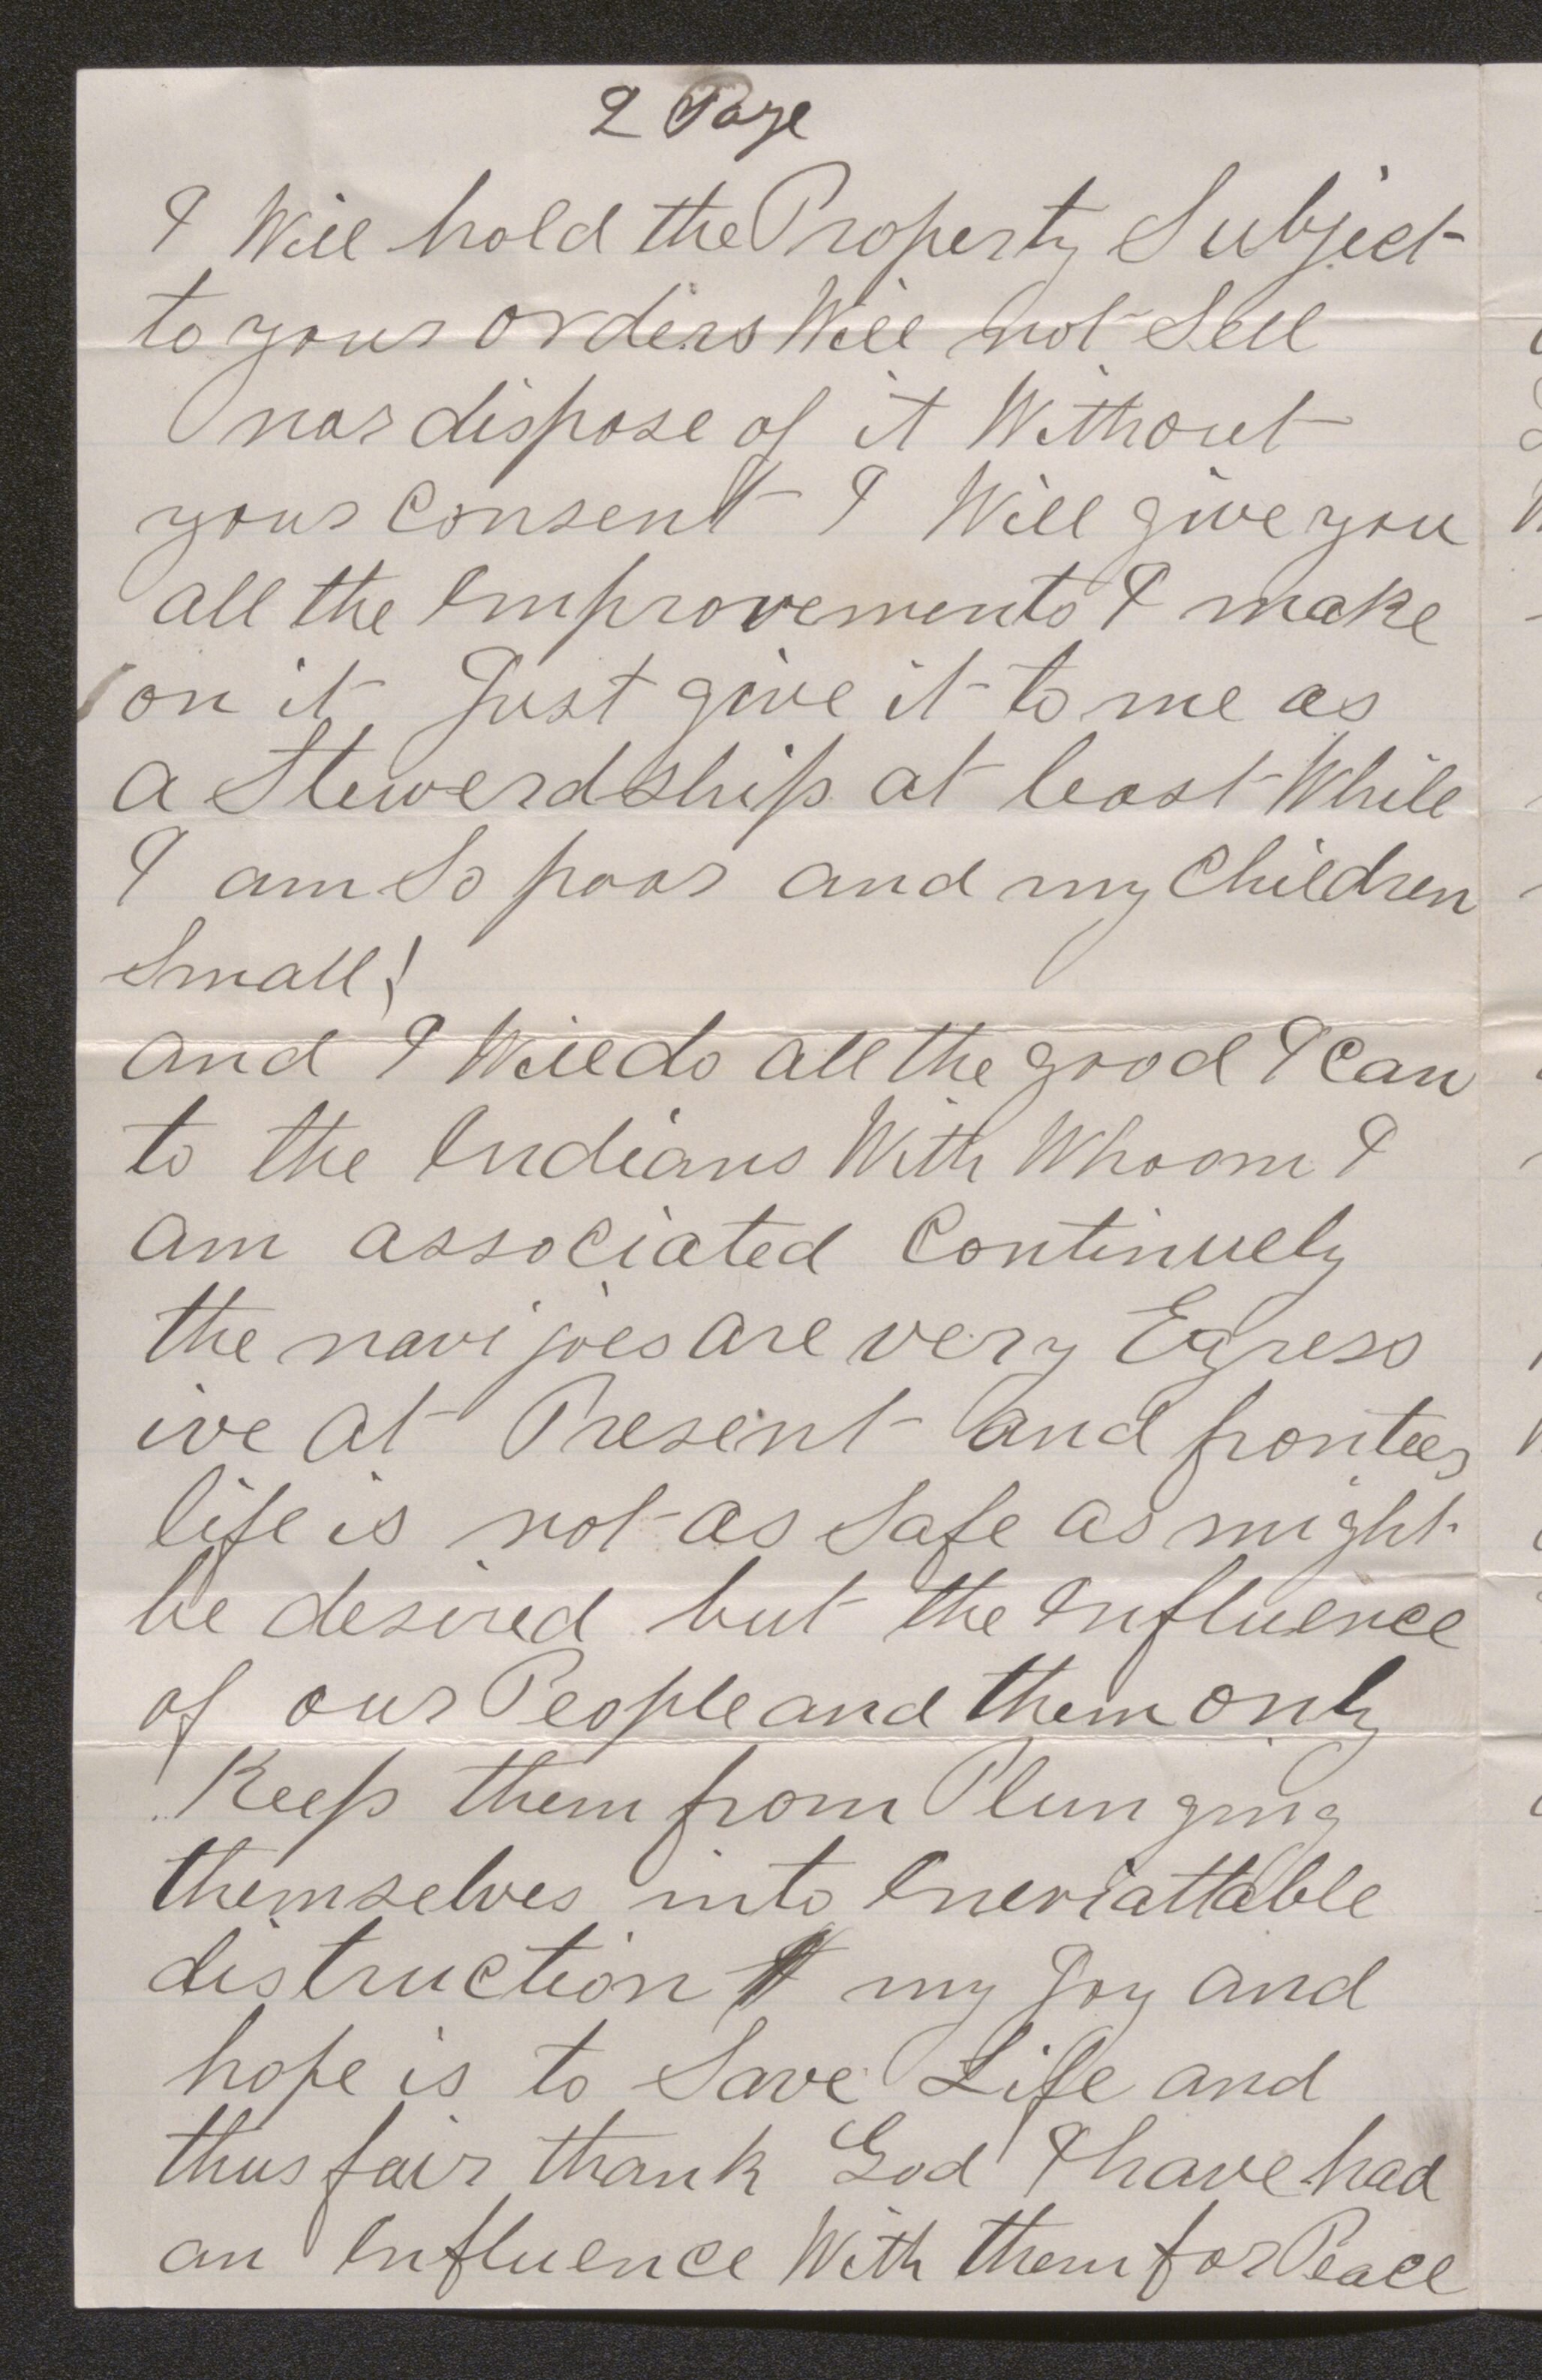 2 Page
I Will hold the Property Subject
to your orders Will not Sell
nor dispose of it Without
your Consent I Will give you
all the Improvements I make
on it Just give it to me as
a Stewerdship at least While
I am So poor and my Children
Small!
and I Will do all the good I Can
to the Indians With Whoom I
am associated Continuely
the navijoes are very Egress
ive at Present and frontier
life is not as Safe as might
be desired but the Influence
of our People and them only
Keep them from Plunging
themselves into Ineviattable
distruction my Joy and
hope is to Save Life and
thus fair thank God I have had
an Influence With them for Peace